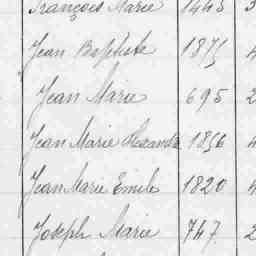 François Marie 1445
Jean Baptiste 1875
Jean Marie 695 2
Jean Marie Alexandre 1856 4
Jean Marie Emile 1820 4
Joseph Marie 747 2